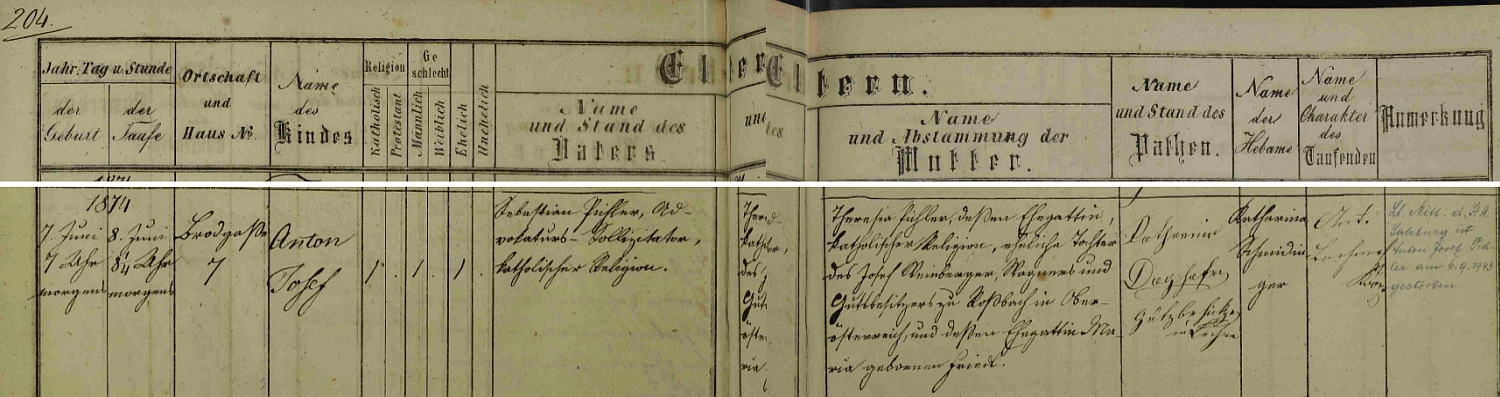 204.
Jahr, Tag u. Stunde
der Geburt
der Taufe
Ortschaft
und
Haus No.
Name
des
Kindes
Religion
Katholisch
Protestant
Ge
schlecht
Männlich
Weiblich
Ehelich
Unehelich
Eltern.
Name
und Stand des
Vaters
Name
und Abstammung der
Mutter.
Name
und Stand des
Pathen.
Name
der
Hebame
Name
und
Charakter
des
Taufenden
Anmerkung
1874
7. Juni
7 Uhr
morgens
8. Juni
8 1/4 Uhr
morgens
Brodgasse
7
Anton
Josef
1 . 1 . 1 .
Sebastian Pichler, Ad-
vokaturs-Sollizitator,
katholischer Religion.
Theresia Pichler, deßen Ehegattin,
katholischer Religion, eheliche Tochter
des Josef Weinberger, Wagners und
Gutsbesitzers zu Roßbach in Ober-
österreich, und deßen Ehegattin Ma-
ria geborenen Friedl.
Katharina
Gutsbesitzer
in
Katharina
Schmidin
ger
Lt. Mitt. d.
Salzburg ist
Anton Josef Pich-
ler am 6.9.1943
gestorben.